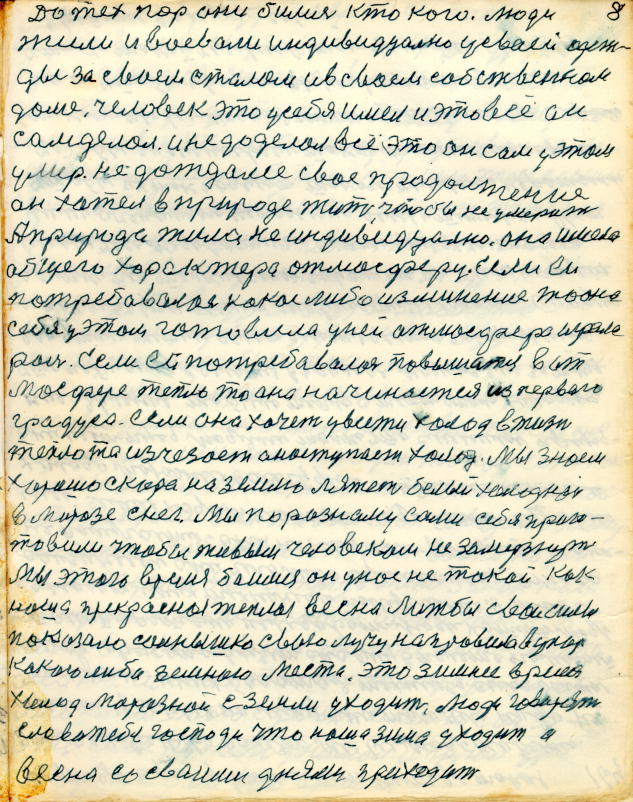 До тех пор они билися кто кого. люди 8
жили и воевали индивидуально у своей одеж-
ды за своем сталом и в своем собственном
доме. человек это у себя имел и это всё он
сам делал. и не доделал всё это он сам у этом
умер. не дождалсе свое продолжение
он хател в природе жить чтобы не умерать
А природа жила не индивидуално. она имела
общего характера атмосферу. Если ей
потребавалося какое либо изминение то она
себя у этом готовила у ней атмосфера играла
рол. Если ей потребавалося повышатся в ат
мосфере тепло то она начинается из первого
градуса. Если она хочет увести холод в тиж
тепло та изчезает а наступает холод. Мы знаем
хорошо скора на землю ляжет белый холодной
в морозе снег. Мы по разнаму сами себя приго-
товили чтобы живым человекам не замерзнут
Мы этого время боимся он у нас не такой как
наша прекрасная теплая весна свои силы
показало солнышко свою лучу направила в упор
какого либа земного места. это зимнее время
холод марозной с земли уходит. люди говорят
слава тебе господи что наша зима уходит а
весна со своими днями приходит